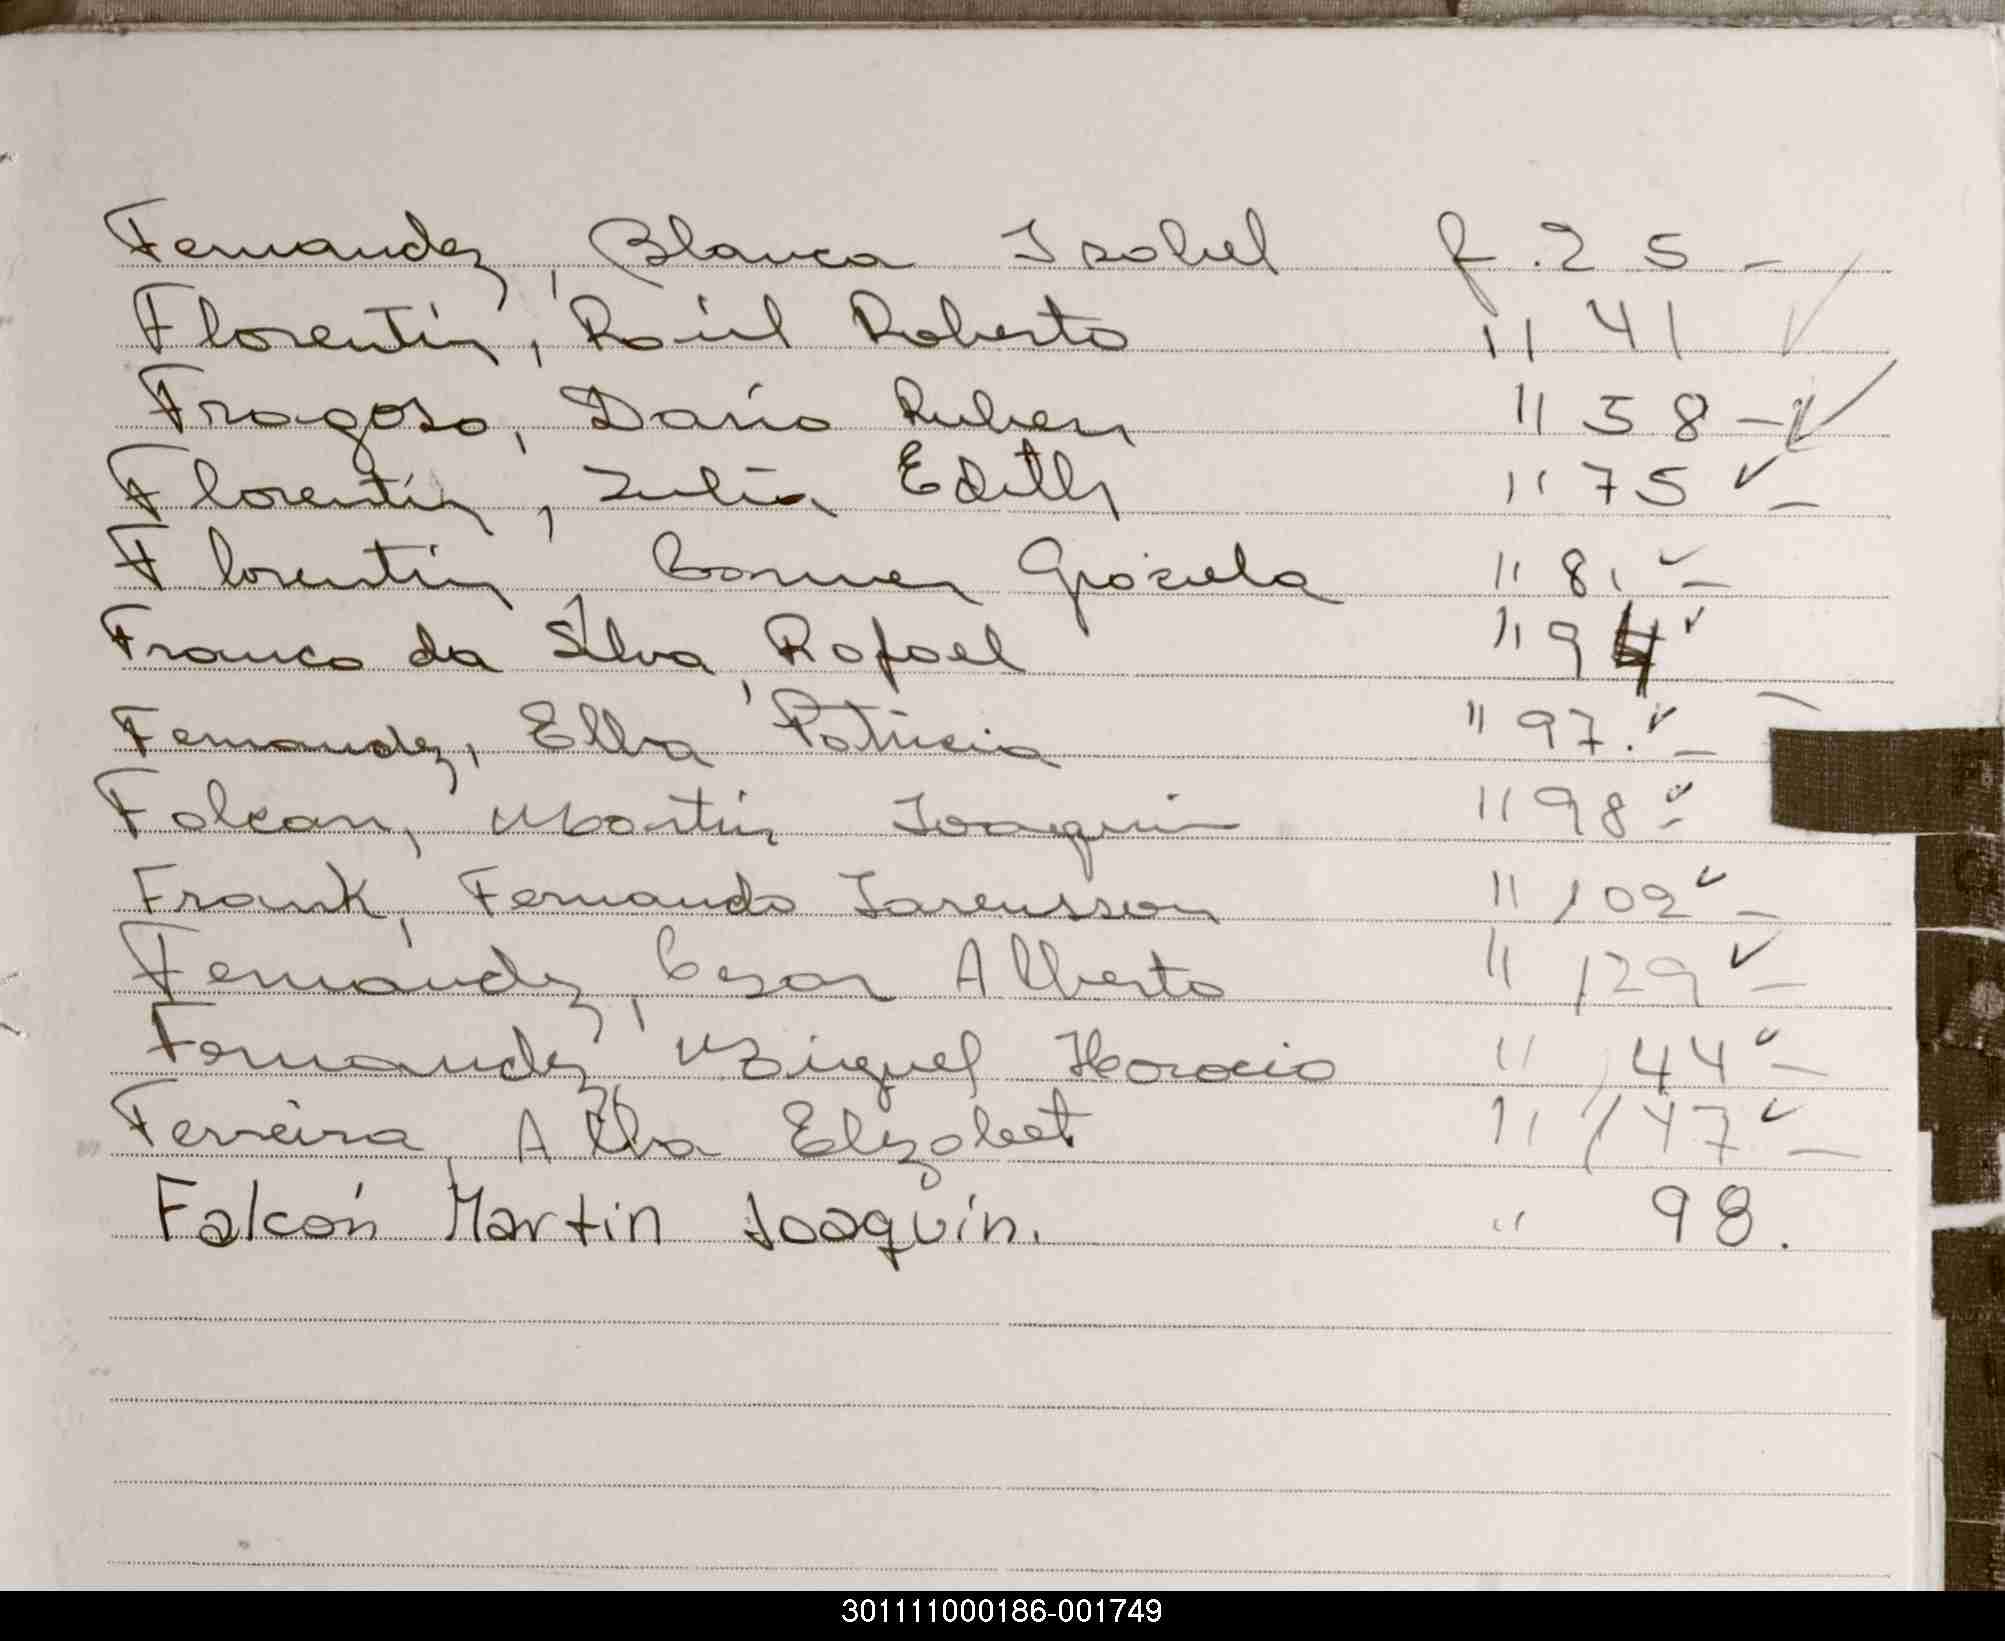 Fernandez, Blanca Isabel f. 25 -
Florentin, Raúl Roberto " 41 ✓
Fragoso, Dario Ruben " 58 - ✓
Florentin, Julia Edith " 75 ✓ -
Florentin, Carmen Graciela " 81 ✓ -
Franco da Silva, Rafael " 94 ✓
Fernandez, Elba Patricia " 97. ✓ -
Falcon, Martin Joaquin " 98 ✓ -
Frank, Fernando " 102 ✓ -
Fernández, Cesar Alberto " 129 ✓ -
Fernandez, Miguel Horacio " 144 ✓ -
Ferreira, Alba Elizabet " 147 ✓ -
Falcón Martin Joaquín. " 98.
301111000186-001749